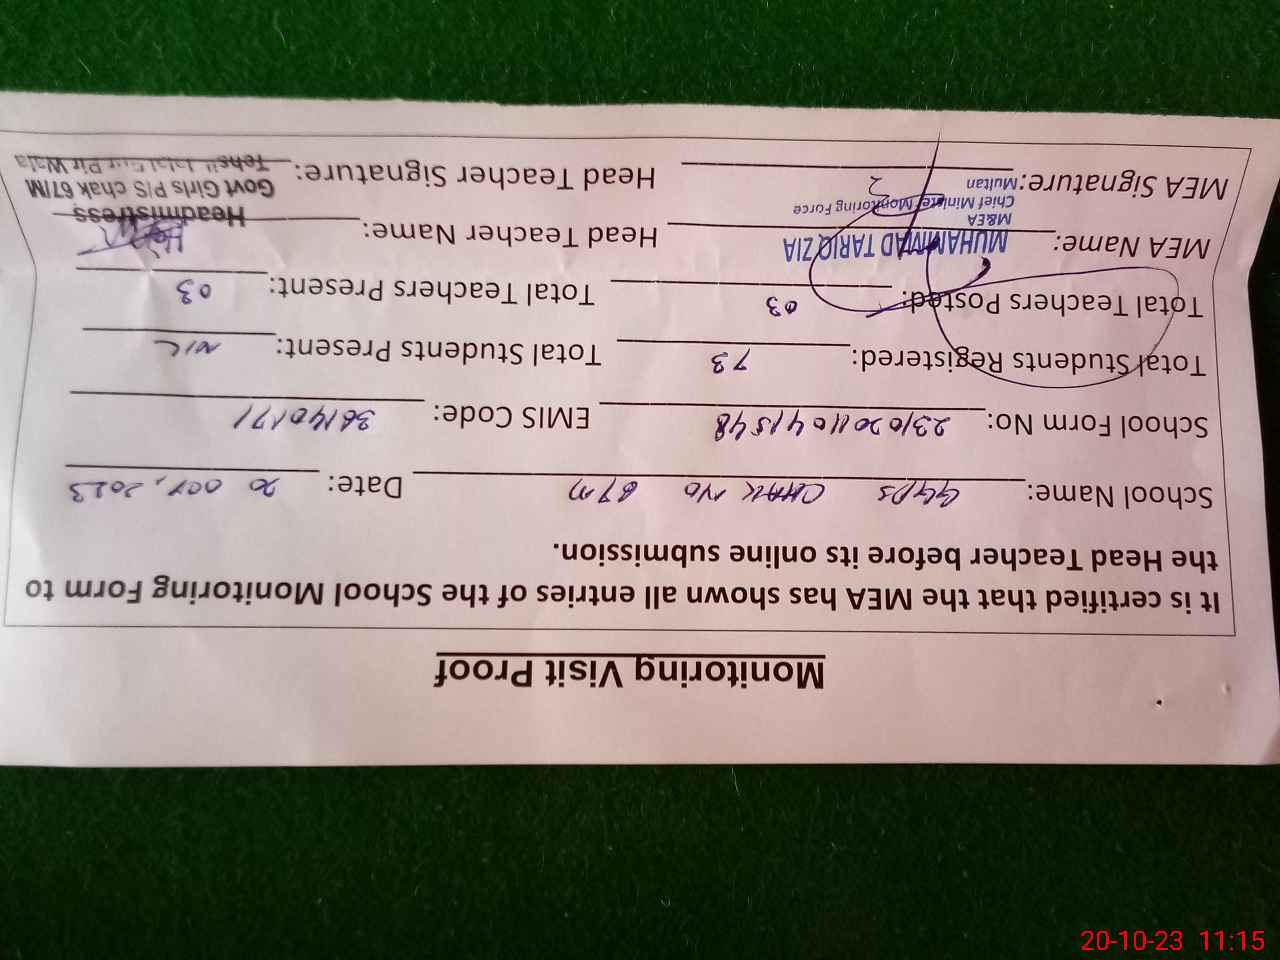 Monitoring Visit Proof
It is certified that the MEA has shown all entries of the School Monitoring Form to
the Head Teacher before its online submission.
School Name: GGPS CHAK NO 67M Date: 20 OCT, 2023
School Form No: 23102011041548 EMIS Code: 36140171
Total Students Registered: 73 Total Students Present: NIL
Total Teachers Posted: 03 Total Teachers Present: 03
MEA Name: MUHAMMAD TARIQ ZIA Head Teacher Name:
M&EA
Chief Minister Monitoring Force
Multan
MEA Signature: Head Teacher Signature:
Headmistress
Govt Girls P/S chak 67/M
Tehsil Jalal Pur Pir Wala
20-10-23 11:15